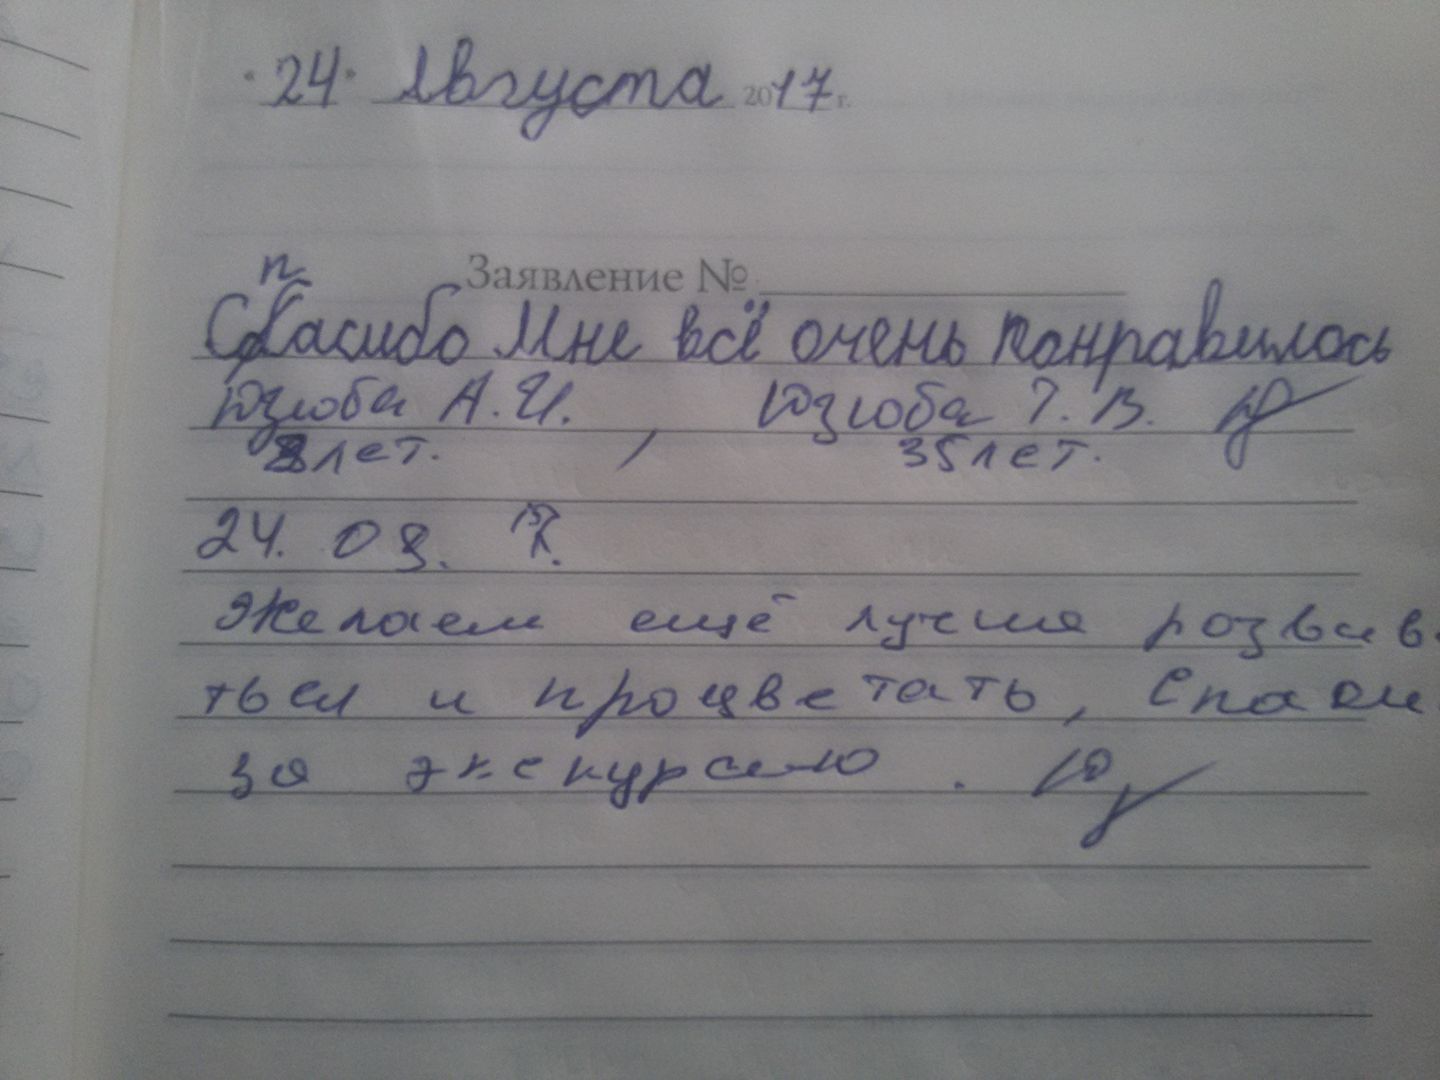 "24" Августа 2017 г.
Заявление №
Спасибо Мне всё очень понравилось
Юзюба А.И. , Юзюба Т.В.
8 лет. 35 лет.
24. 08. 17.
Желаем ещё лучше розвив
ться и процветать, Спаси
за экскурсию.